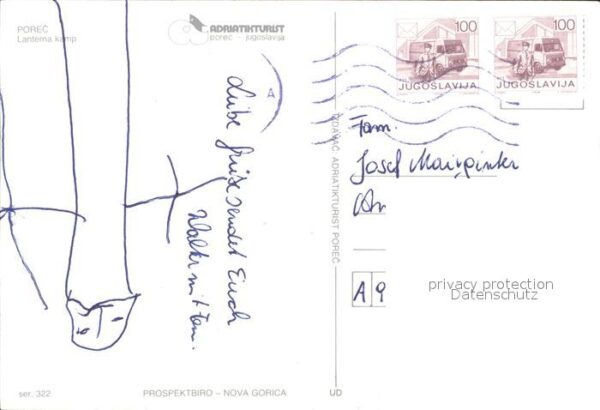 POREČ
Lanterna kamp
ADRIATIKTURIST
poreč - jugoslavija
Liebe Grüße sendet Euch
Walter mit Fam.
A
ser. 322
PROSPEKTBIRO – NOVA GORICA
UD
IZDAVAČ ADRIATIKTURIST POREČ
100
JUGOSLAVIJA
100
JUGOSLAVIJA
Fam.
Josef
An
A 9
privacy protection
Datenschutz